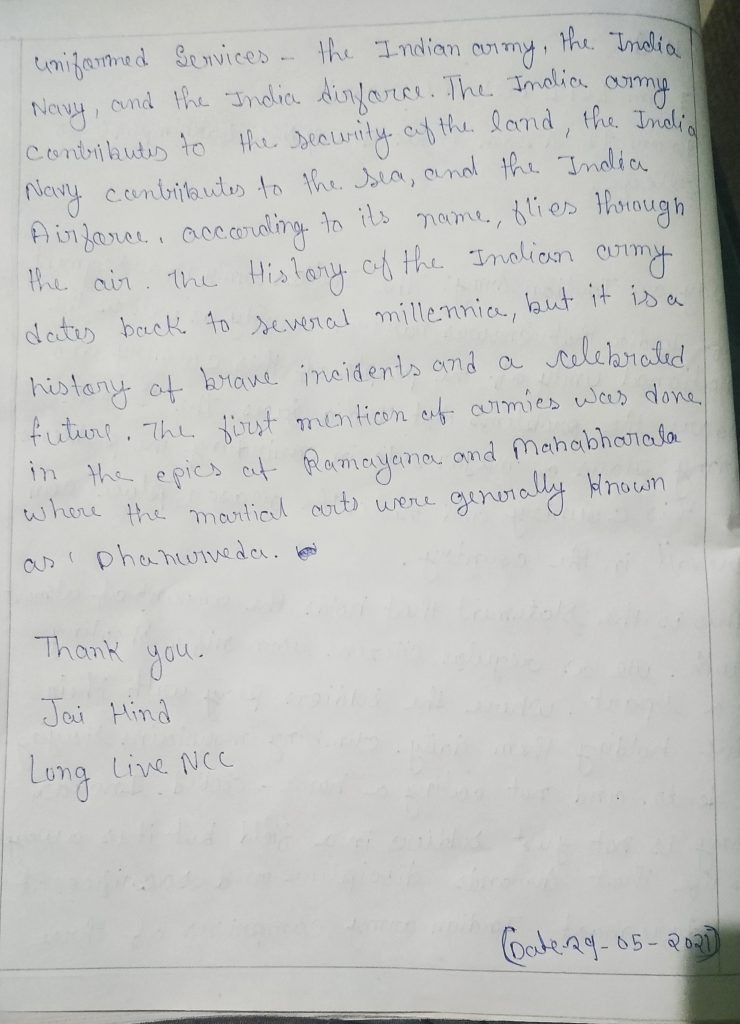 uniformed Services - the Indian army, the India
Navy, and the India Airforce. The India army
contributes to the security of the land, the India
Navy contributes to the sea, and the India
Airforce, according to its name, flies through
the air. The History of the Indian army
dates back to several millennia, but it is a
history of brave incidents and a celebrated
future. The first mention of armies was done
in the epics of Ramayana and Mahabharata
where the martial arts were generally known
as ' Dhanurveda.
Thank you.
Jai Hind
Long Live NCC
(Date-29-05-2021)